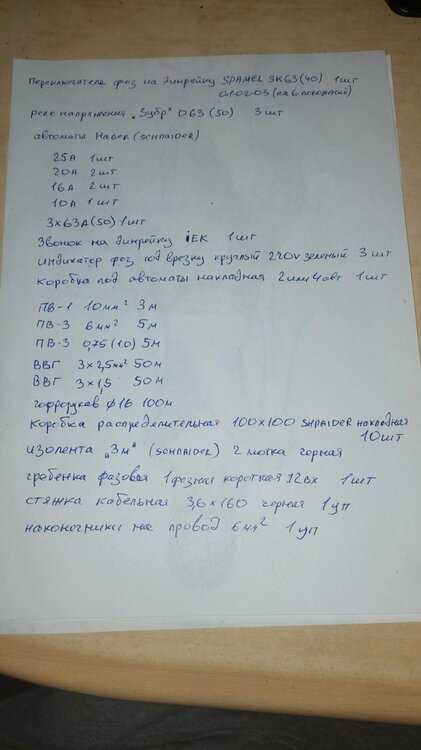 Переключатель фаз на динрейку SPAMEL SK63(40) 1шт
0102-03 (на 6 положений)
реле напряжения "Зубр" D63 (50) 3 шт
автоматы HAGER (SCHNAIDER)
25А 1шт
20А 2шт
16А 2шт
10А 1шт
3х63А(50) 1шт
Звонок на динрейку iEK 1шт
индикатор фаз под врезку круглый 220v зеленый 3 шт
коробка под автоматы накладная 2или4авт 1шт
ПВ-1 10мм² 3м
ПВ-3 6мм² 5м
ПВ-3 0,75(1.0) 5м
ВВГ 3х2,5мм² 50м
ВВГ 3х1,5 50м
гофрорукав ф16 100м
коробка распределительная 100х100 SHNAIDER накладная
10шт
изолента "3м" (SCHNAIDER) 2 мотка черная
гребенка фазовая 1фазная короткая 12вх 1шт
стяжка кабельная 3,6х160 черная 1уп
наконечники на провод 6мм² 1уп